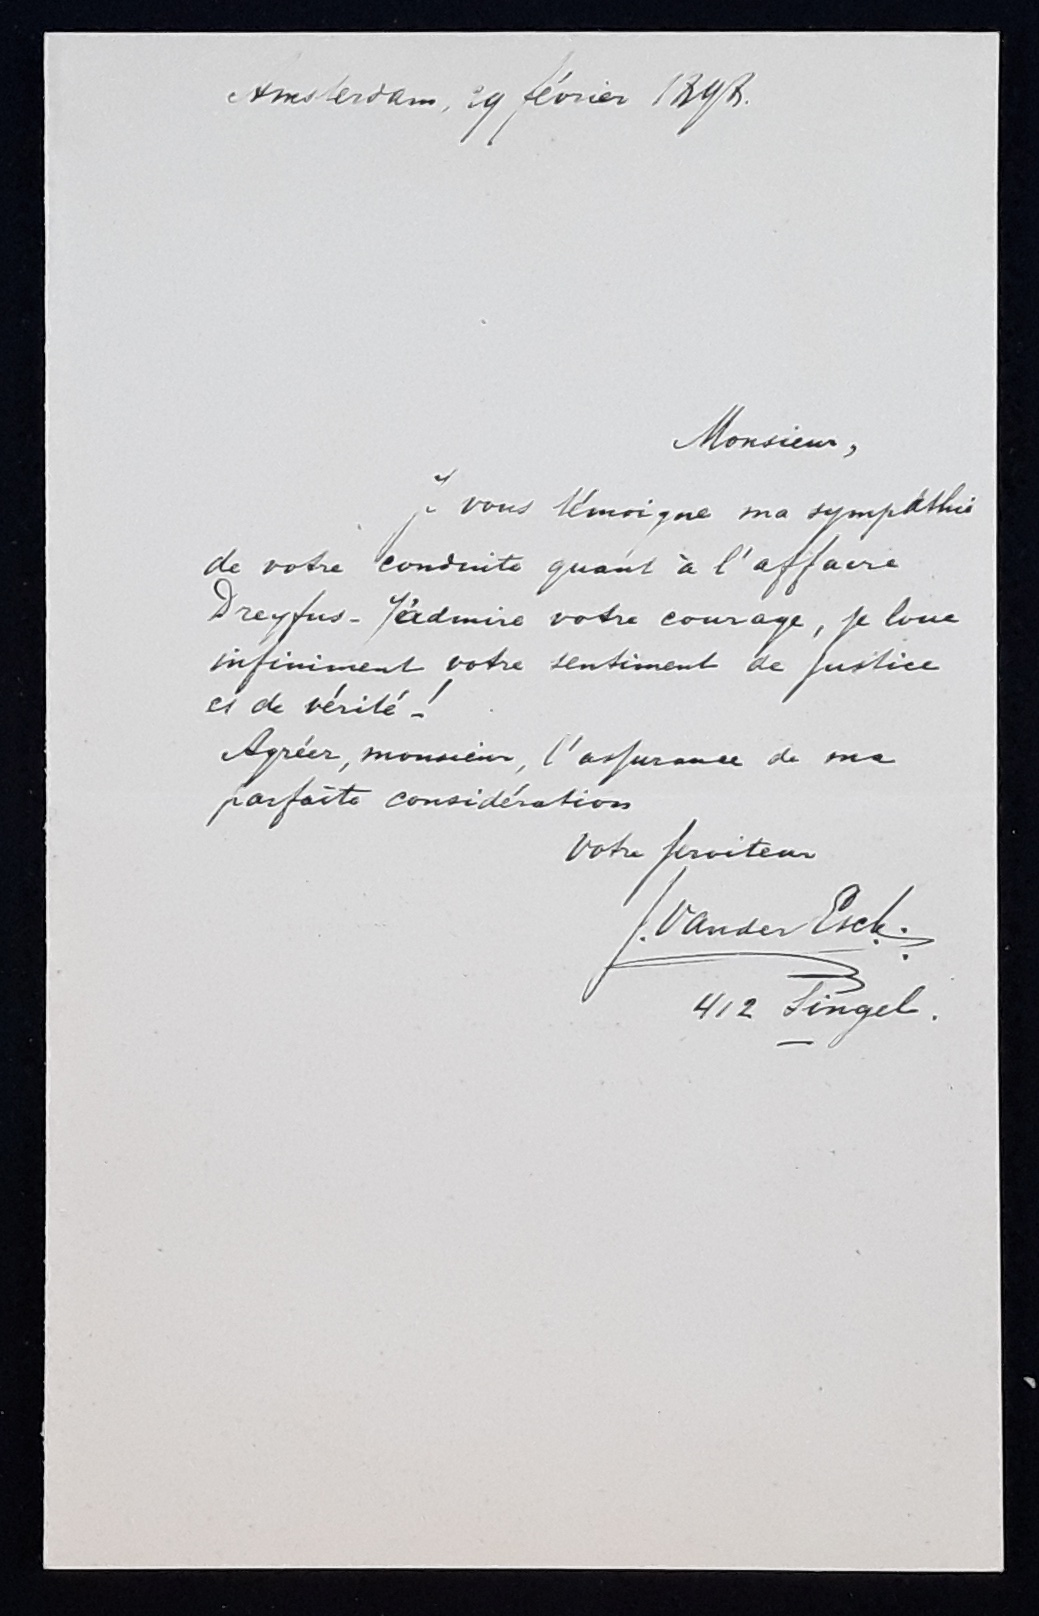 Amsterdam, 29 février 1898.
Monsieur,
Je vous témoigne ma sympathie
de votre conduite quant à l'affaire
Dreyfus - J'admire votre courage, je loue
infiniment votre sentiment de justice
et de vérité -!
Agréer, monsieur, l'assurance de ma
parfaite considération
Votre serviteur
J. Vander Esch.
412 Singel.